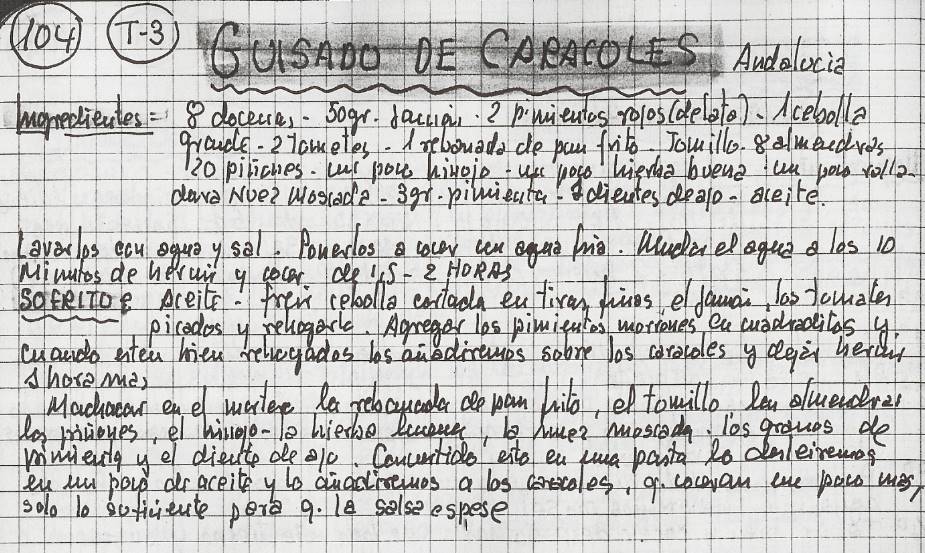 104 T-3 GUISADO DE CARACOLES Andalucia
Ingredientes = 8 docenas - 50gr. Jamón - 2 pimientos rojos (de lata) - 1 cebolla
grande - 2 Tomates - 1 rebanada de pan frito - Tomillo - 8 almendras
20 piñones - un poco hinojo - un poco hierba buena - un poco ralla-
dura Nuez Moscada - 3gr. pimienta - dientes de ajo - aceite.
Lavarlos con agua y sal. Ponerlos a cocer con agua fria. Mudar el agua a los 10
Minutos de hervir y cocer de 1,5 - 2 HORAS
SOFRITO = Aceite - freir cebolla cortada en tiras finas, el Jamón, los Tomates
picados y rehogarlo. Agregar los pimientos morrones en cuadraditos y
cuando esten bien rehogados los añadiremos sobre los caracoles y dejar hervir
1 hora mas
Machacar en el mortero la rebanada de pan frito, el tomillo las almendras
los piñones, el hinojo - la hierba buena, la nuez moscada. los granos de
pimienta y el diente de ajo. Convertido esto en una pasta lo desleiremos
en un poco de aceite y lo añadiremos a los caracoles, q. coceran un poco mas,
solo lo suficiente para q. la salsa espese